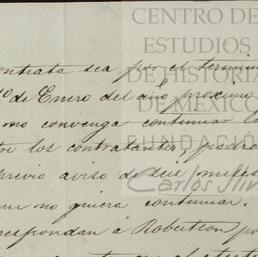 CENTRO DE
ESTUDIOS
DE HISTORIA
DE MEXICO
FUNDACIÓN
Carlos Slim
contrata sea por el termino
1º de Enero del año proximo
no convenga continuar la
los contratantes, podra
previo aviso de seis meses
no quiera continuar.
respondan á Robertson por